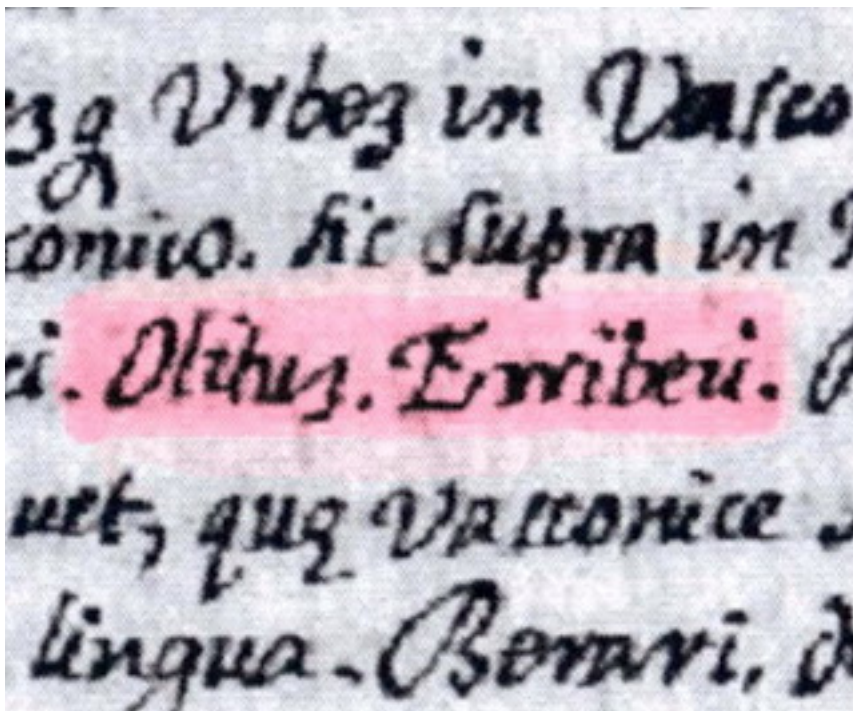 Vrbez in Vasco
conico. sic supra in
ei. Olitus. Erriberi.
uet, quę Vasconice
lingua. Berarri.